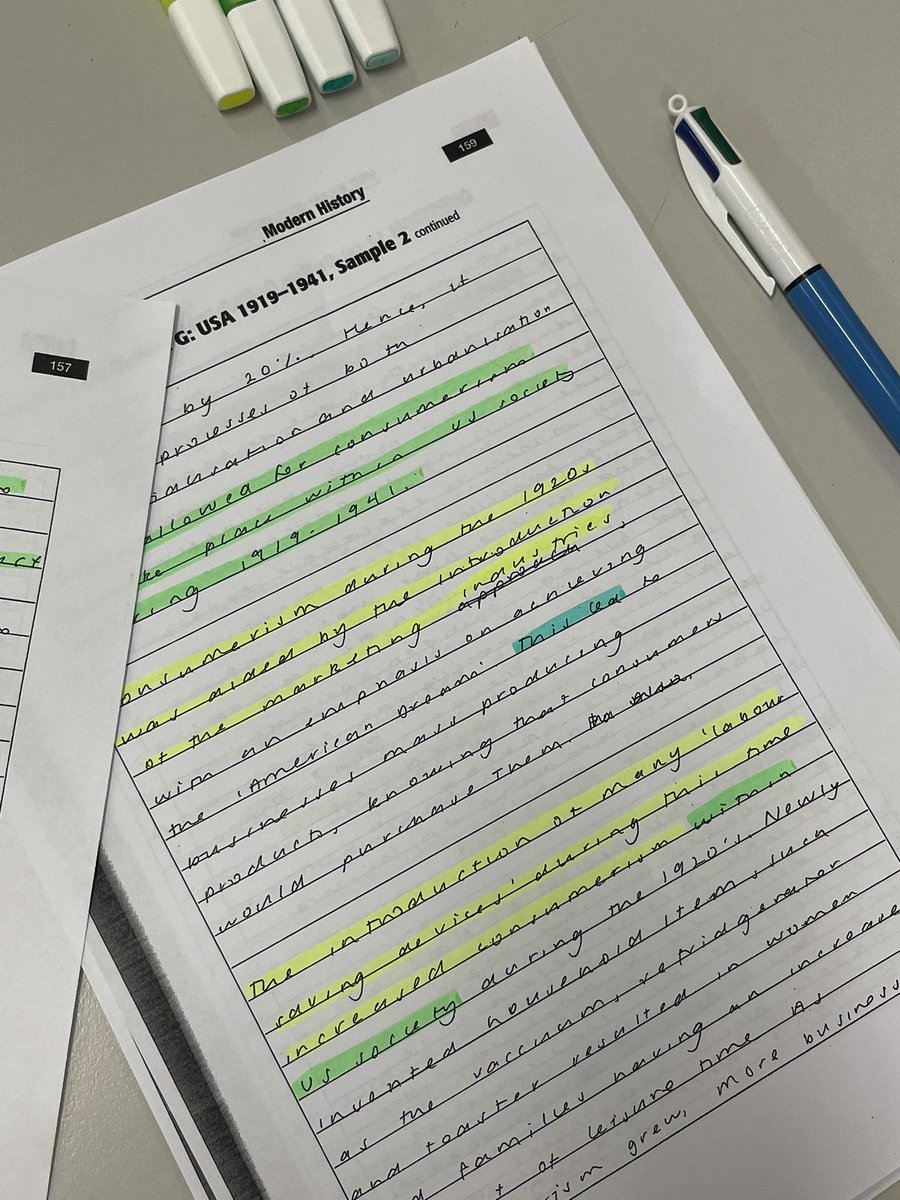 159
Modern History
G: USA 1919–1941, Sample 2 continued
157
by 20%. Hence, it
processes of both
and urbanisation
allowed for consumerism
place within US society
1919-1941.
during the 1920s
was aided by the introduction
of the marketing industries,
with an emphasis on achieving
the 'American Dream'. This led to
businesses mass producing
products, knowing that consumers
would purchase them
The introduction of many 'labour
saving devices' during this time
increased consumerism within
US society during the 1920's. Newly
invented household items such
as the vaccuum, refridgerator
and toaster resulted in women
families having an increase
of leisure time. As
grew, more business